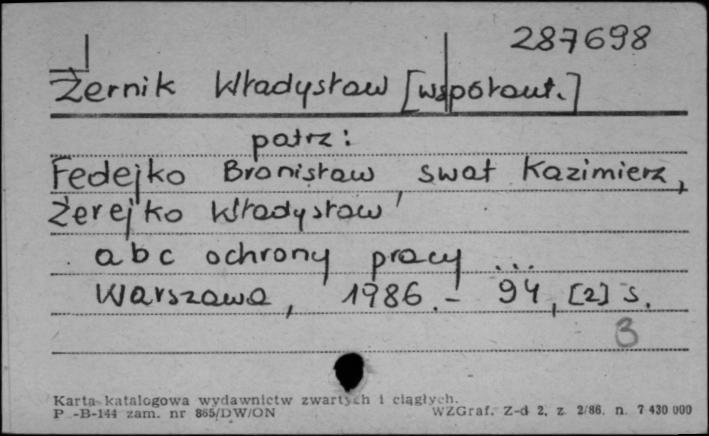 287698
Żernik Władysław [współaut.]
patrz:
Fedejko Bronisław, Swat Kazimierz,
Żerejko Władysław
abc ochrony pracy ...
Warszawa, 1986. - 94, [2] s.
3
Karta katalogowa wydawnictw zwartych i ciągłych.
P-B-144 zam. nr 865/DW/ON WZGraf. Z-d 2, z. 2/86. n. 7 430 000